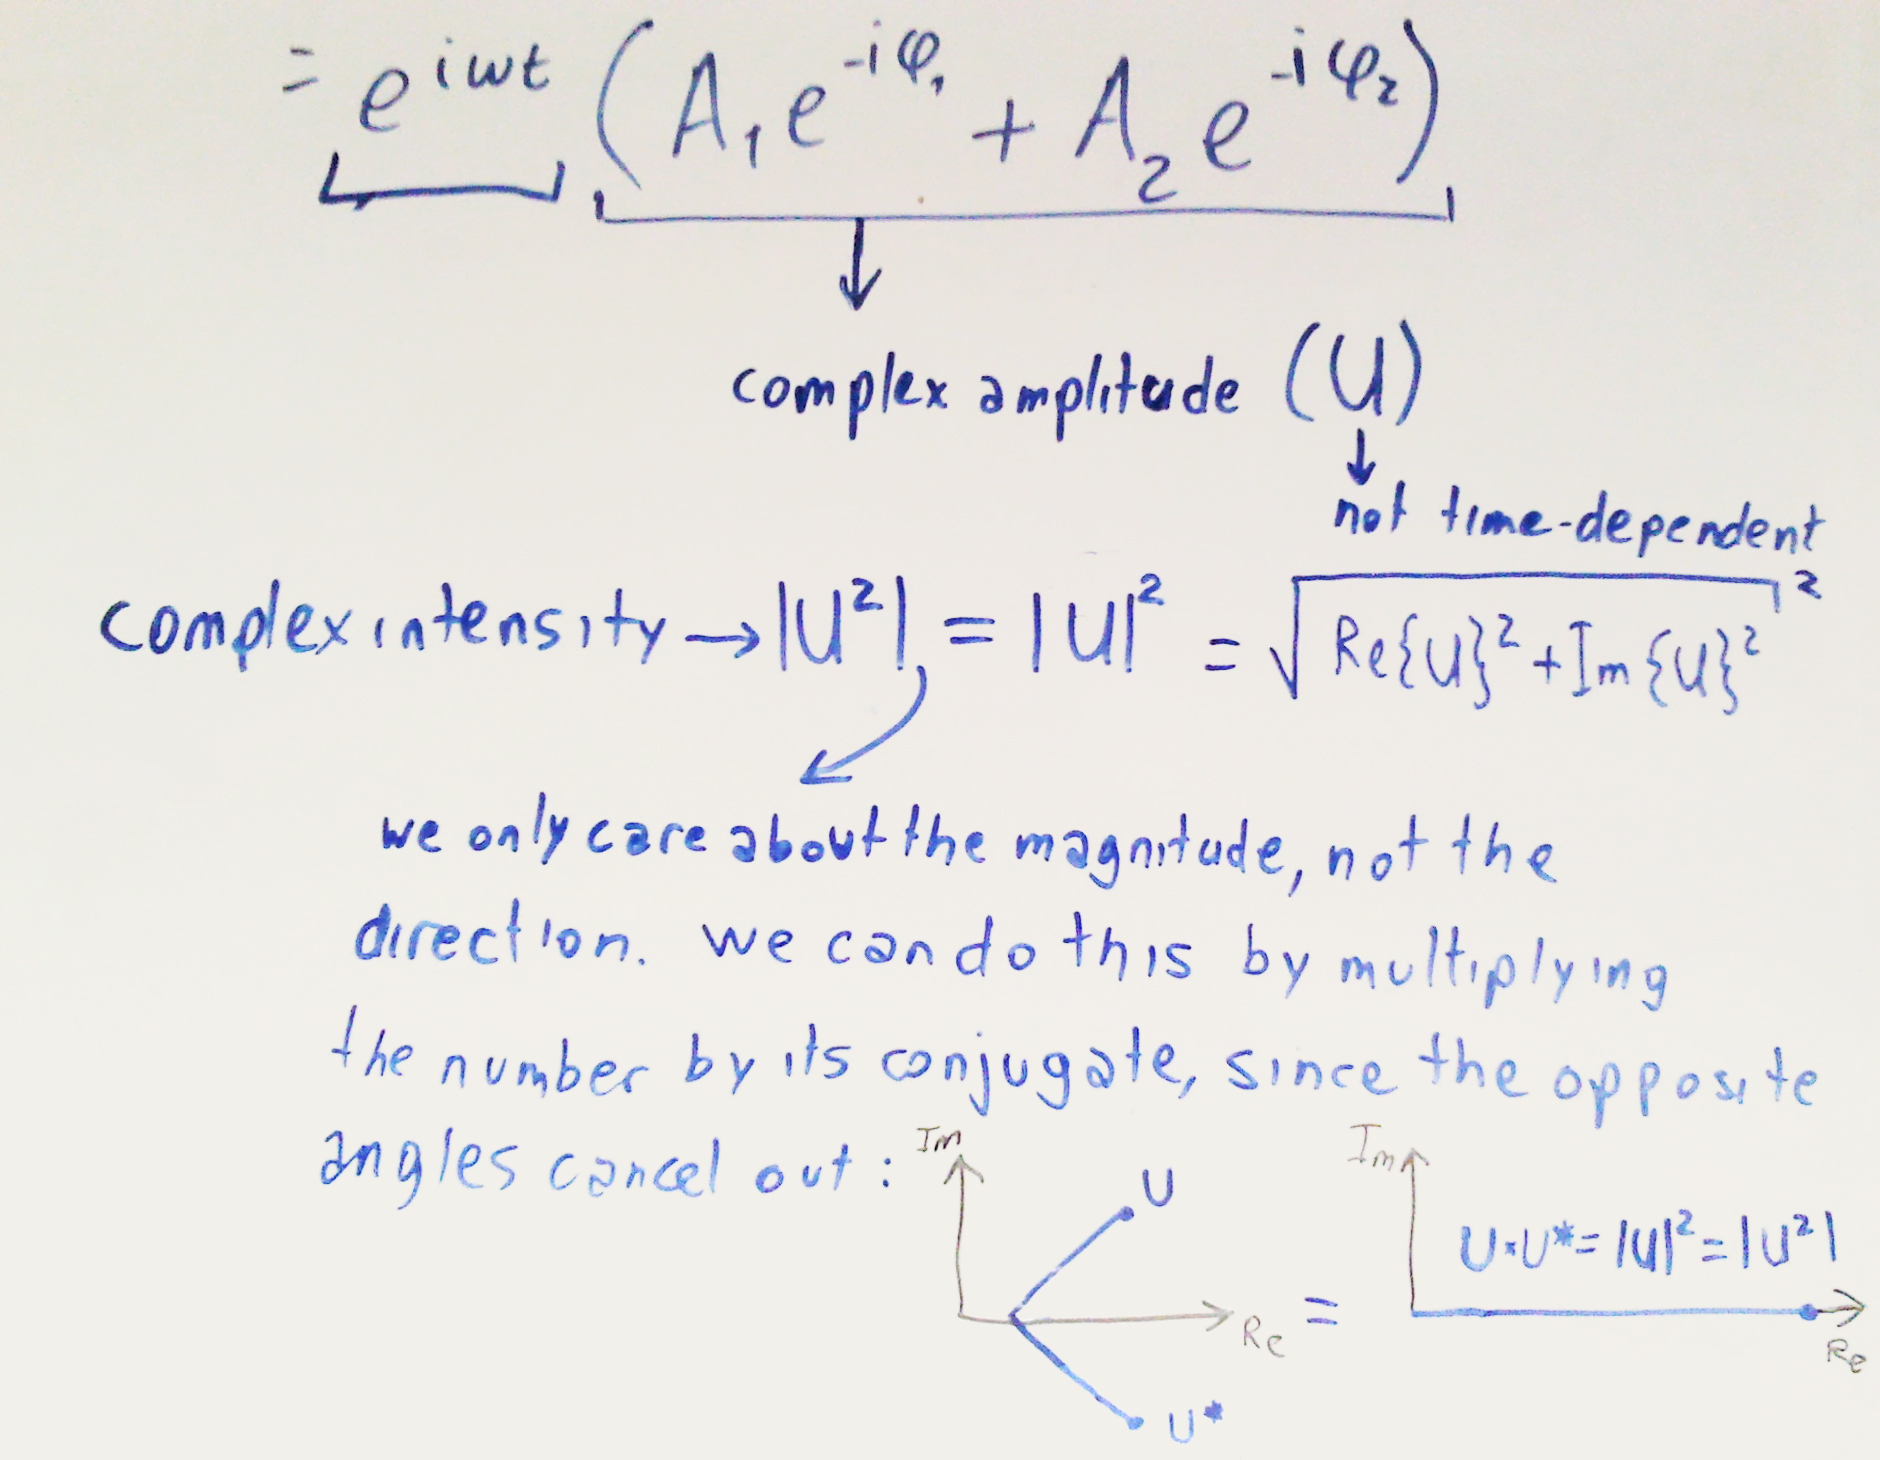 = e^{iωt} (A₁e^{-iφ₁} + A₂e^{-iφ₂})
complex amplitude (U)
not time-dependent
complex intensity → |U²| = |U|² = √(Re{U}² + Im{U}²)²
we only care about the magnitude, not the
direction. we can do this by multiplying
the number by its conjugate, since the opposite
angles cancel out:
Im
U
Re
U*
=
Im
U·U* = |U|² = |U²|
Re